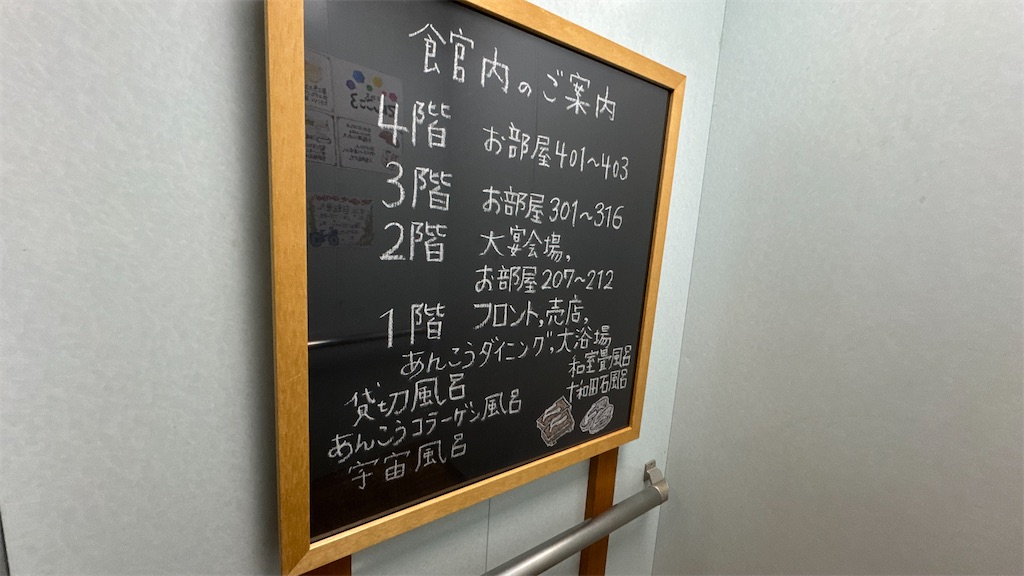 館内のご案内
4階 お部屋401〜403
3階 お部屋301〜316
2階 大宴会場,
お部屋207〜212
1階 フロント,売店,
あんこうダイニング,大浴場
和室畳風呂
十和田石風呂
貸切風呂
あんこうコラーゲン風呂
宇宙風呂